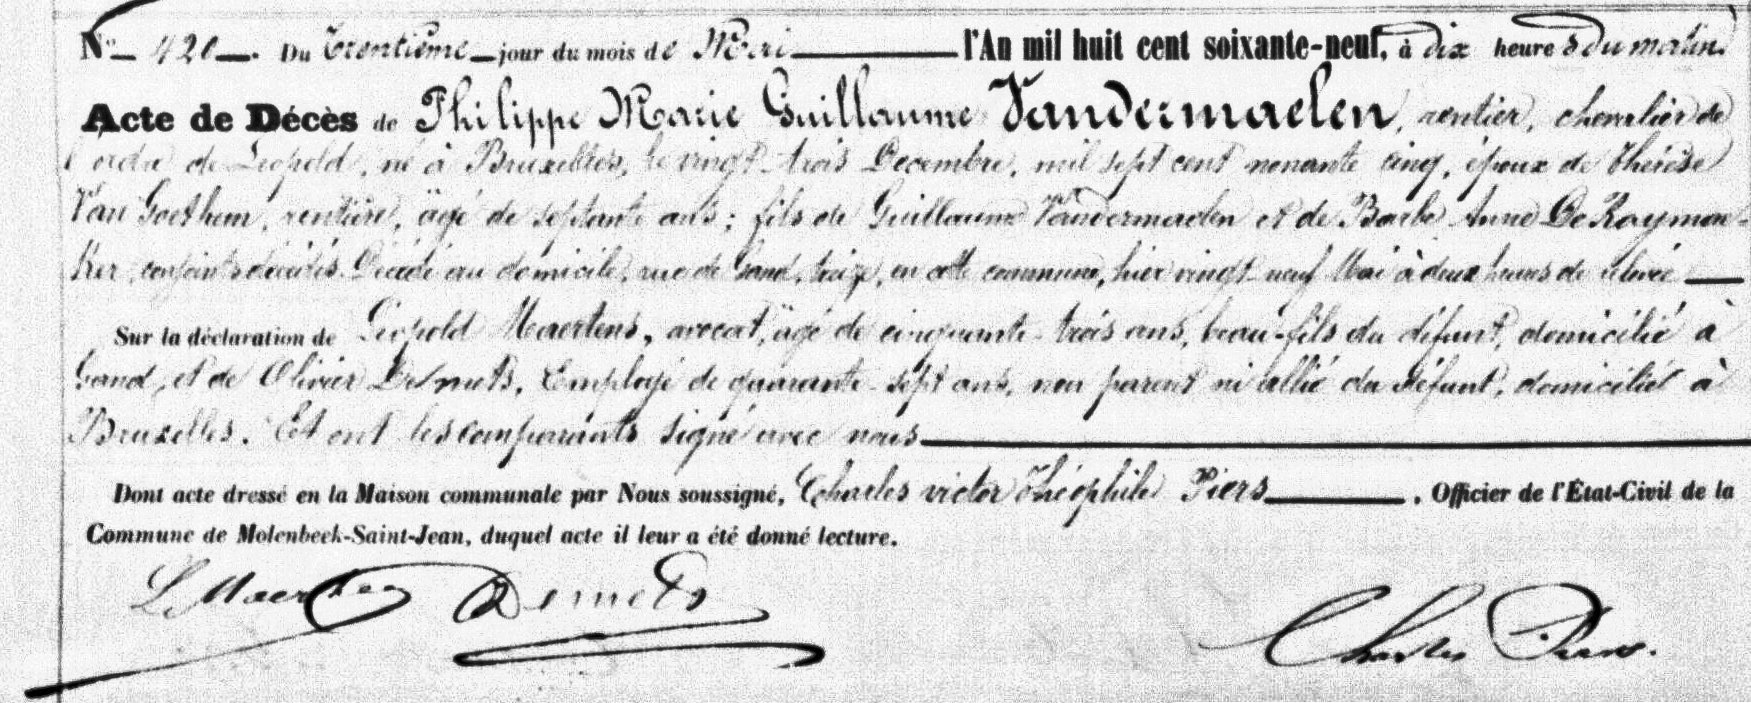 N° 420. Du trentième jour du mois de Mai l'An mil huit cent soixante-neuf, à dix heures du matin.
Acte de Décès de Philippe Marie Guillaume Vandermaelen, rentier, chevalier de
l'ordre de Léopold, né à Bruxelles, le vingt-trois Decembre, mil sept cent nonante cinq, époux de Thérèse
Van Goethem, rentière, âgé de septante ans; fils de Guillaume Vandermaelen et de Barbe Anne De Raymon-
Ker, conjoints décédés. Décédé au domicile, rue de Gand, treize, en cette commune, hier vingt-neuf Mai à deux heures de relevée
Sur la déclaration de Léopold Maertens, avocat, âgé de cinquante-trois ans, beau-fils du défunt, domicilié à
Gand, et de Olivier Desmets, Employé de quarante-sept ans, non parent ni allié du défunt, domicilié à
Bruxelles. Et ont les comparants signé avec nous
Dont acte dressé en la Maison communale par Nous soussigné, Charles victor théophile Piers, Officier de l'État-Civil de la
Commune de Molenbeek-Saint-Jean, duquel acte il leur a été donné lecture.
L Maertens Demets Charles Piers.